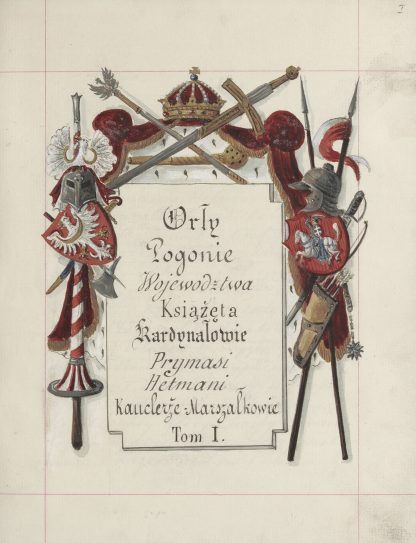 Orły
Pogonie
Województwa
Książęta
Kardynałowie
Prymasi
Hetmani
Kanclerze-Marszałkowie
Tom I.